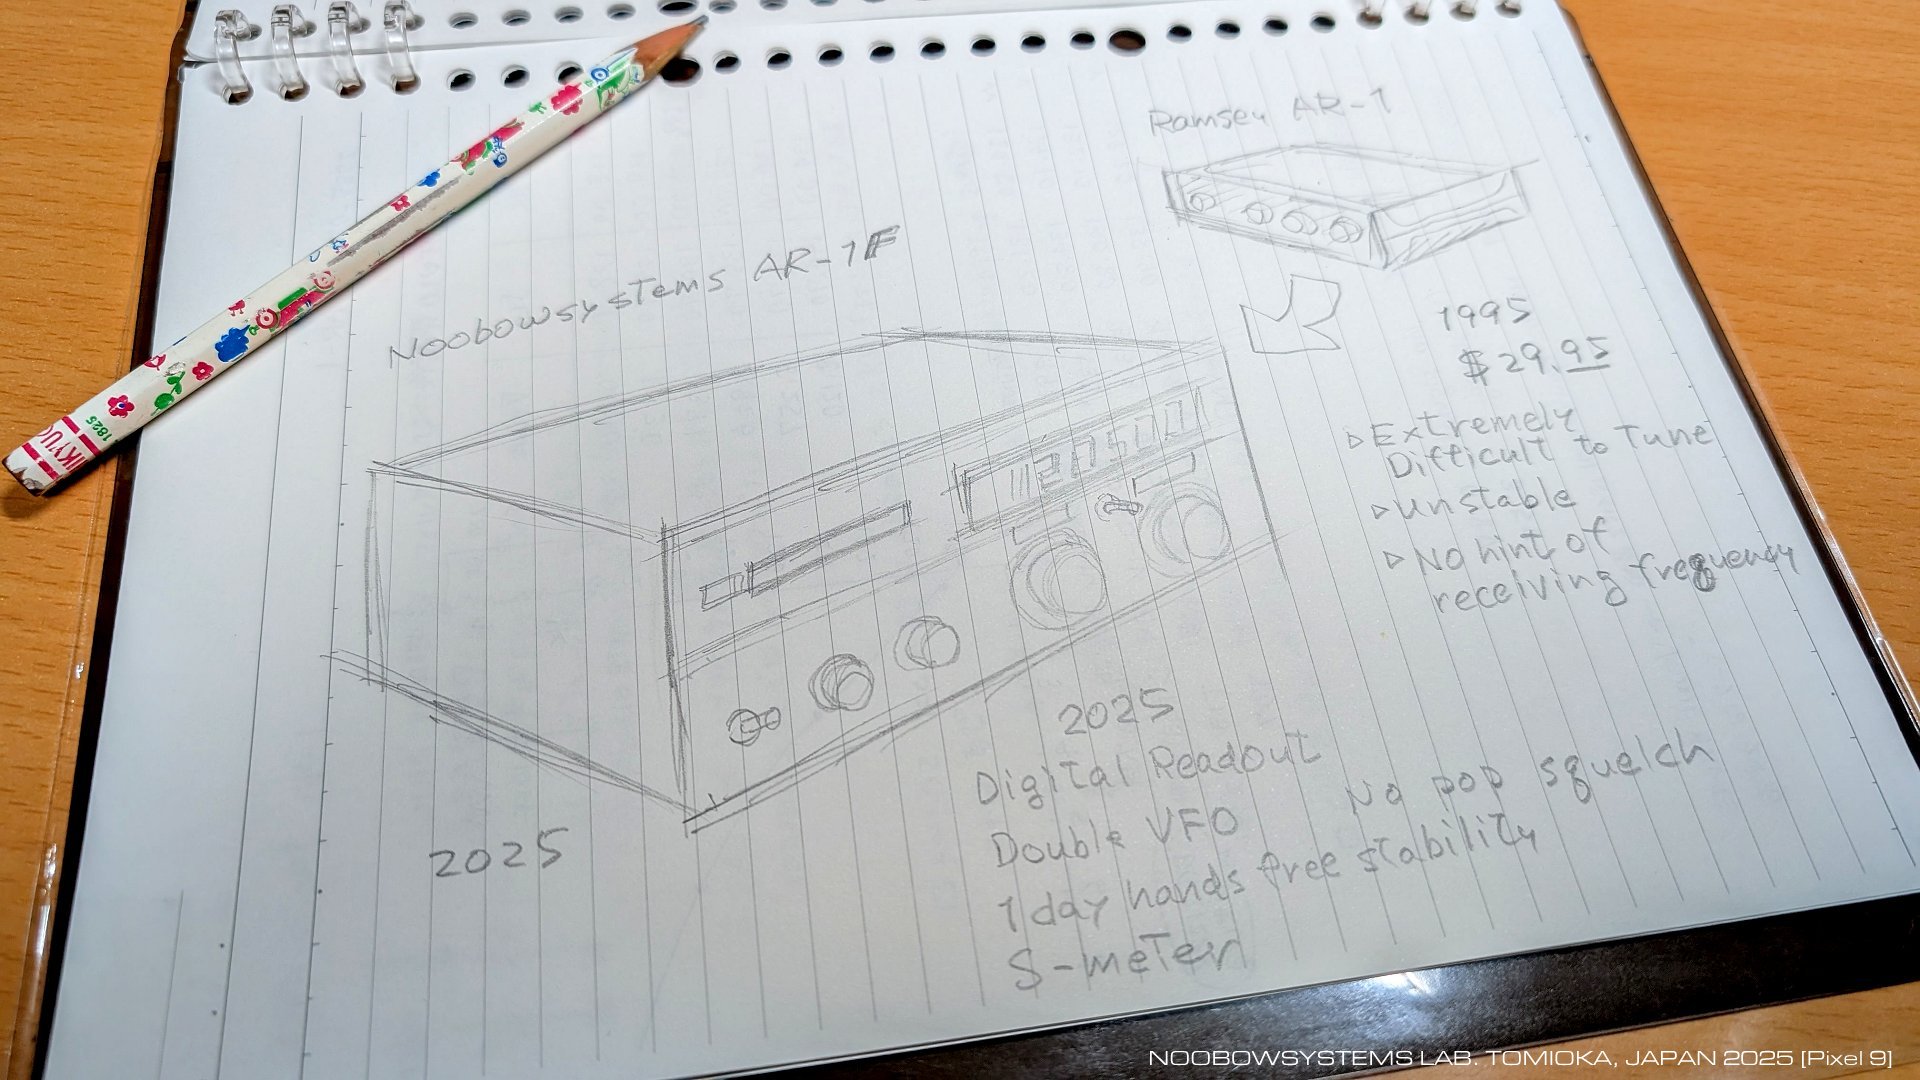 Ramsey AR-1
Noobowsystems AR-1F
1995
$29.95
▷Extremely
Difficult to Tune
▷unstable
▷No hint of
receiving frequency
127500
2025
Digital Readout
No pop squelch
Double VFO
1day hands free stability
S-meter
2025
1825
NOOBOWSYSTEMS LAB. TOMIOKA, JAPAN 2025 [Pixel 9]